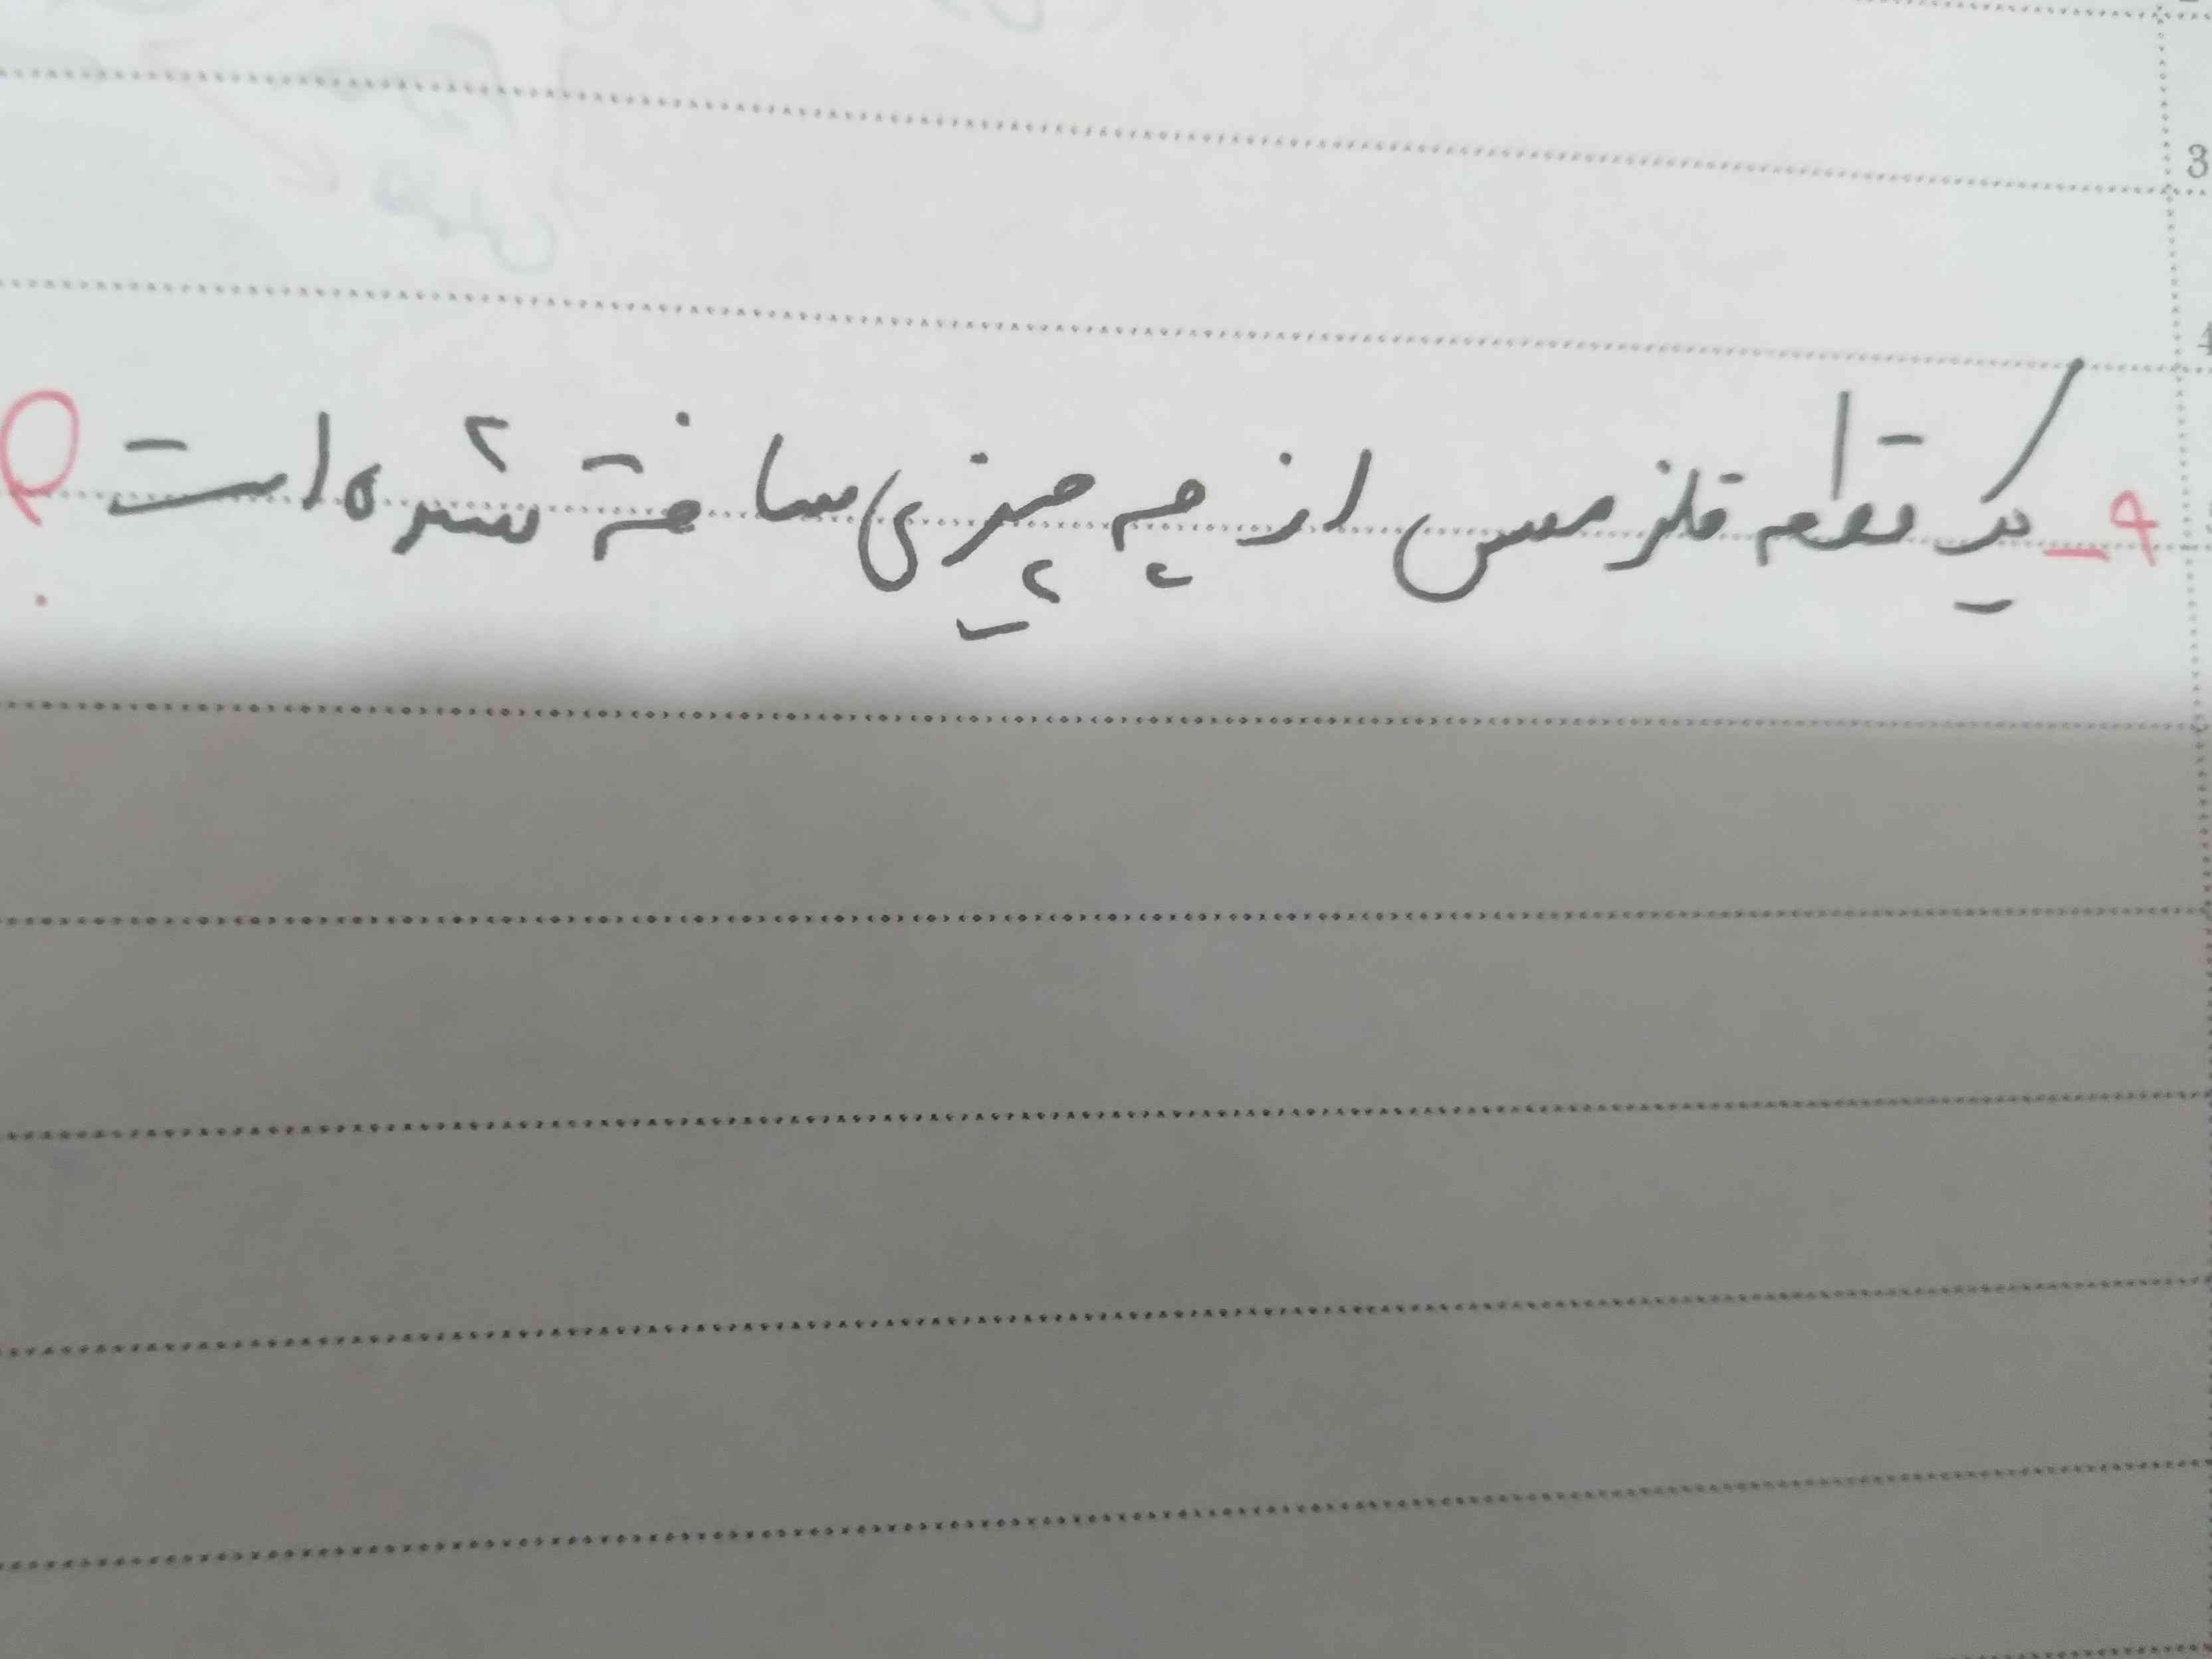 3
4
۹_ یک قطعه فلز مس از چه چیزی ساخته شده است؟